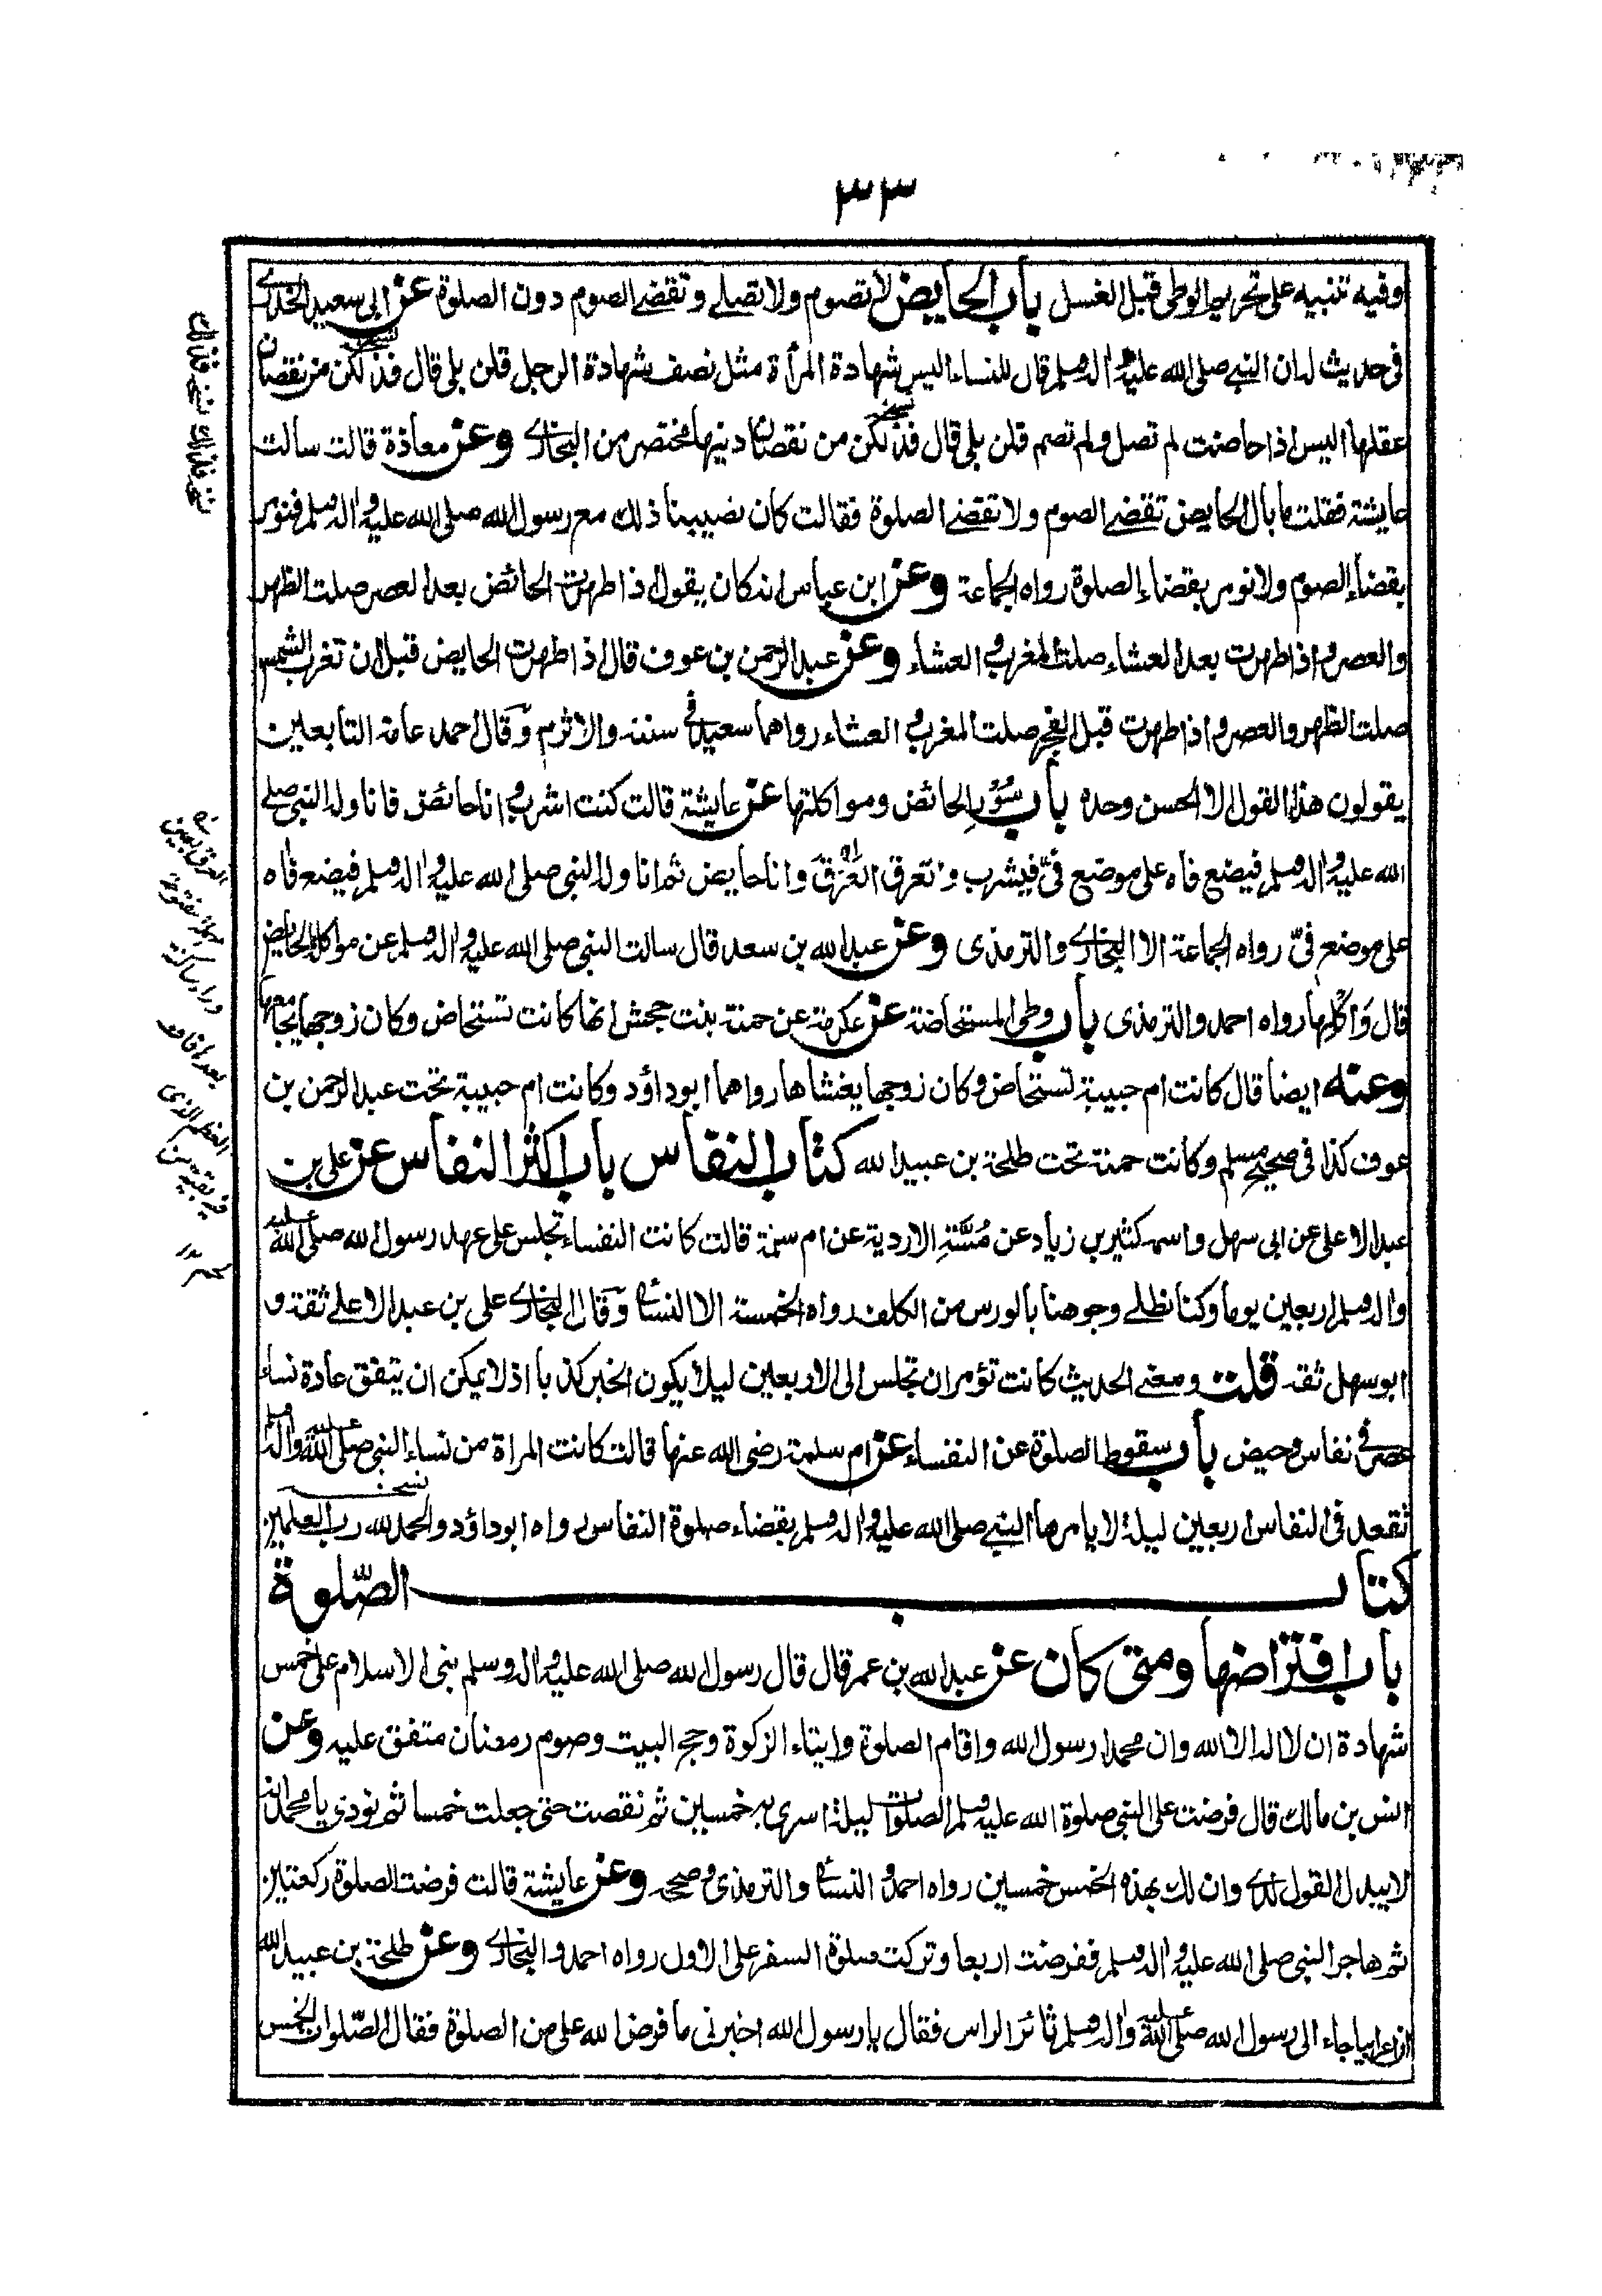 ٣٣
وفيه تنبيه على تحريم الوطي قبل الغسل باب الحايض لا تصوم ولا تصلے وتقضے الصوم دون الصلوة عن ابى سعيد الخدرے
فى حديث له ان النبے صلى الله عليه واله وسلم قال للنساء اليس شهادة المرأة مثل نصف شهادة الرجل قلن بلى قال فذلكن من نقصان
عقلها اليس اذا حاضت لم تصل ولم تصم قلن بلى قال فذلكن من نقصان دينها مختصر من البخارے وعن معاذة قالت سالت
عايشة فقلت ما بال الحايض تقضے الصوم ولا تقضے الصلوة فقالت كان يصيبنا ذلك مع رسول الله صلى الله عليه واله وسلم فنومر
بقضاء الصوم ولا نومر بقضاء الصلوة رواه الجماعة وعن ابن عباس انه كان يقول اذا طهرت الحائض بعد العصر صلت الظهر
والعصر واذا طهرت بعد العشاء صلت المغرب والعشاء وعن عبد الرحمن بن عوف قال اذا طهرت الحايض قبل ان تغرب الشمس
صلت الظهر والعصر واذا طهرت قبل الفجر صلت المغرب والعشاء رواهما سعيد فى سننه والاثرم وقال احمد عامة التابعين
يقولون هذا القول الا الحسن وحده باب سؤر الحائض ومواكلتها عن عايشة قالت كنت اشرب وانا حائض فاناوله النبى صلے
الله عليه واله وسلم فيضع فاه على موضع فىّ فيشرب واتعرق العرق وانا حايض ثم اناوله النبى صلى الله عليه واله وسلم فيضع فاه
على موضع فىّ رواه الجماعة الا البخارے والترمذى وعن عبد الله بن سعد قال سالت النبى صلى الله عليه واله وسلم عن مواكلة الحايض
قال واكلها رواه احمد والترمذى باب وطى المستحاضة عن عكرمة عن حمنة بنت جحش انها كانت تستحاض وكان زوجها يجامعها
وعنه ايضا قال كانت ام حبيبة تستحاض وكان زوجها يغشاها رواهما ابو داؤد وكانت ام حبيبة تحت عبد الرحمن بن
عوف كذا فى صحيح مسلم وكانت حمنة تحت طلحة بن عبيد الله كتاب النفاس باب اكثر النفاس عن على بن
عبد الاعلى عن ابى سهل واسمه كثير بن زياد عن مُسّة الازدية عن ام سلمة قالت كانت النفساء تجلس على عهد رسول الله صلى الله عليه
واله وسلم اربعين يوما وكنا نطلے وجوهنا بالورس من الكلف رواه الخمسة الا النسائى وقال البخارے على بن عبد الاعلے ثقة و
ابو سهل ثقه قلت ومعنے الحديث كانت تؤمر ان تجلس الى الاربعين ليلا يكون الخبر كذبا اذ لا يمكن ان يتفق عادة نساء
عصر فى نفاس وحيض باب سقوط الصلوة عن النفساء عن ام سلمة رضى الله عنها قالت كانت المراة من نساء النبى صلى الله عليه واله وسلم
تقعد فى النفاس اربعين ليلة لا يامرها النبے صلى الله عليه واله وسلم بقضاء صلوة النفاس رواه ابو داؤد والحمد لله رب العلمين
كتاب الصّلوة
باب افتراضها ومتى كان عن عبد الله بن عمر قال قال رسول الله صلى الله عليه واله وسلم بنى الاسلام على خمس
شهادة ان لا اله الا الله وان محمدا رسول الله واقام الصلوة وايتاء الزكوة وحج البيت وصوم رمضان متفق عليه وعن
انس بن مالك قال فرضت على النبى صلوة الله عليه وسلم الصلوات ليلة اسرى به خمسين ثم نقصت حتى جعلت خمسا ثم نودى يا محمد انه
لا يبدل القول لدے وان لك بهذه الخمس خمسين رواه احمد والنسائى والترمذى وصححه وعن عايشة قالت فرضت الصلوة ركعتين
ثم هاجر النبى صلى الله عليه واله وسلم ففرضت اربعا وتركت صلوة السفر على الاول رواه احمد والبخارے وعن طلحة بن عبيد الله
ان اعرابيا جاء الى رسول الله صلى الله عليه واله وسلم ثائر الراس فقال يا رسول الله اخبرنى ما فرض الله على من الصلوة فقال الصّلوات الخمس